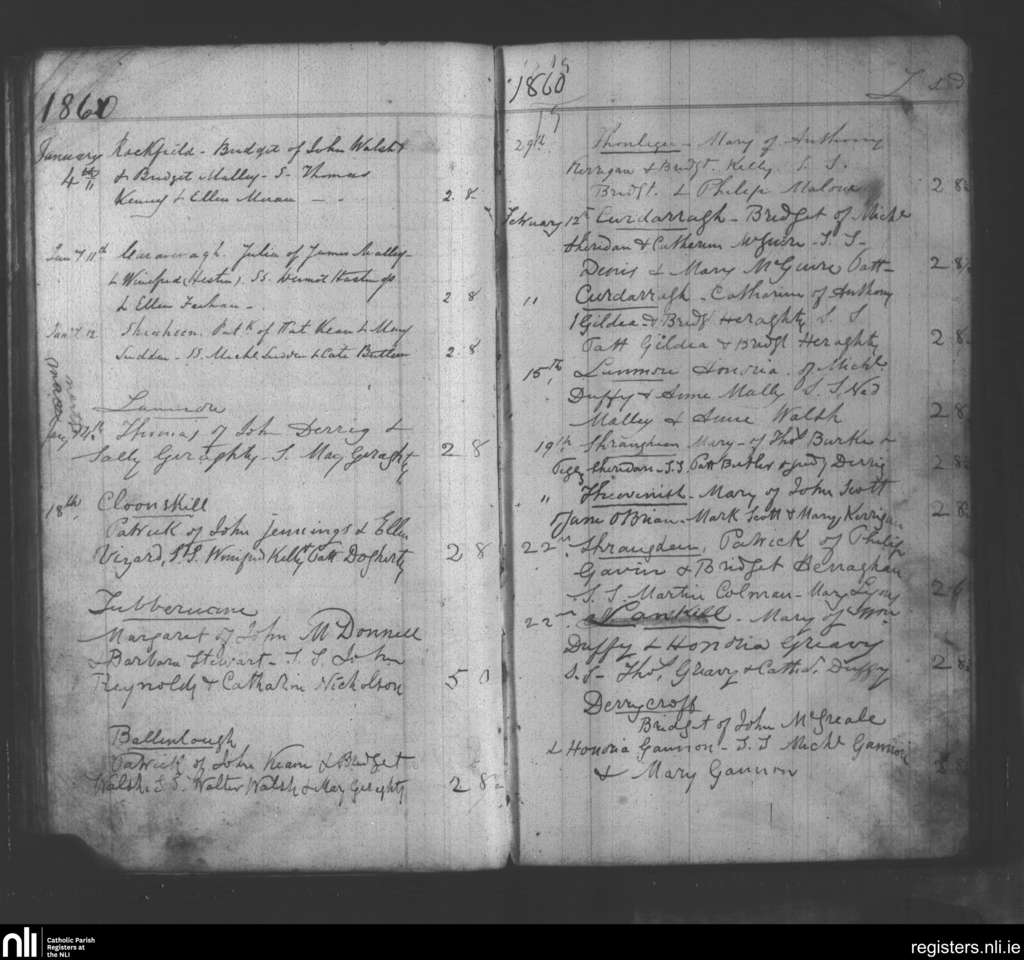 1860
January Rockfield - Bridget of John Walsh
4th & Bridget Malley - S. Thomas
Kenny & Ellen Moran - - 2. 8
Jany 11th Julia of James Malley
& Winifred (Hester). SS. Dermot Hastings
& Ellen - 2 8
Jany 12 Shraheen. of Pat Kean & Mary
- SS. Michl & Cate Butler 2. 8
Lanmore
Jany 14th Thomas of John Derrig &
Sally Geraghty - S. May Geraghty 2 8
18th Cloonskill
Patrick of John Jennings & Ellen
Vizard, S.S. Winifred Kelly Patt Dogherty 2 8
Tubberucane
Margaret of John McDonnell
& Barbara Stewart - S. S. John
Reynolds & Catharine Nicholson 5 0
Ballinlough
Patrick of John Keane & Bridget
Walsh S S. Walter Walsh & May Geraghty 2 8
19
1860
19
29th - Mary of Anthony
Kerrigan & Bridgt. Kelly S. S.
Bridgt. & Philip Malone 2 8
February 12th Curdarragh - Bridget of Michl
Sheridan & Catherine McGuire - S. S -
Denis & Mary McGuire Patt - 2 8
" Curdarragh - Catharine of Anthony
Gildea & Bridgt Heraghty S. S
Patt Gildea & Bridgt Heraghty 2 8
15th Lanmore Honoria of Michl
Duffy & Anne Mally S. S. Ned
Malley & Anne Walsh 2 8
19th Mary - of Thos Burke &
Peggy Sheridan - S.S. Patt Butler & Judy Derrig 2 8
" - Mary of John Scott
& Jane OBrian - Mark Scott & Mary Kerrigan 2 8
22nd Patrick of Philip
Gavin & Bridget Henaghan
S. S. Martin Colman - Mary Lyons 2 6
22nd - Mary of Wm
Duffy & Honoria Greavy
S. S - Thos. Greavy & Cathe. Duffy 2 8
Derrycroff
Bridget of John McGreale
& Honoria Gannon - S. S Michl Gannon
& Mary Gannon 2 8
nli
Catholic Parish
Registers at
the NLI
registers.nli.ie